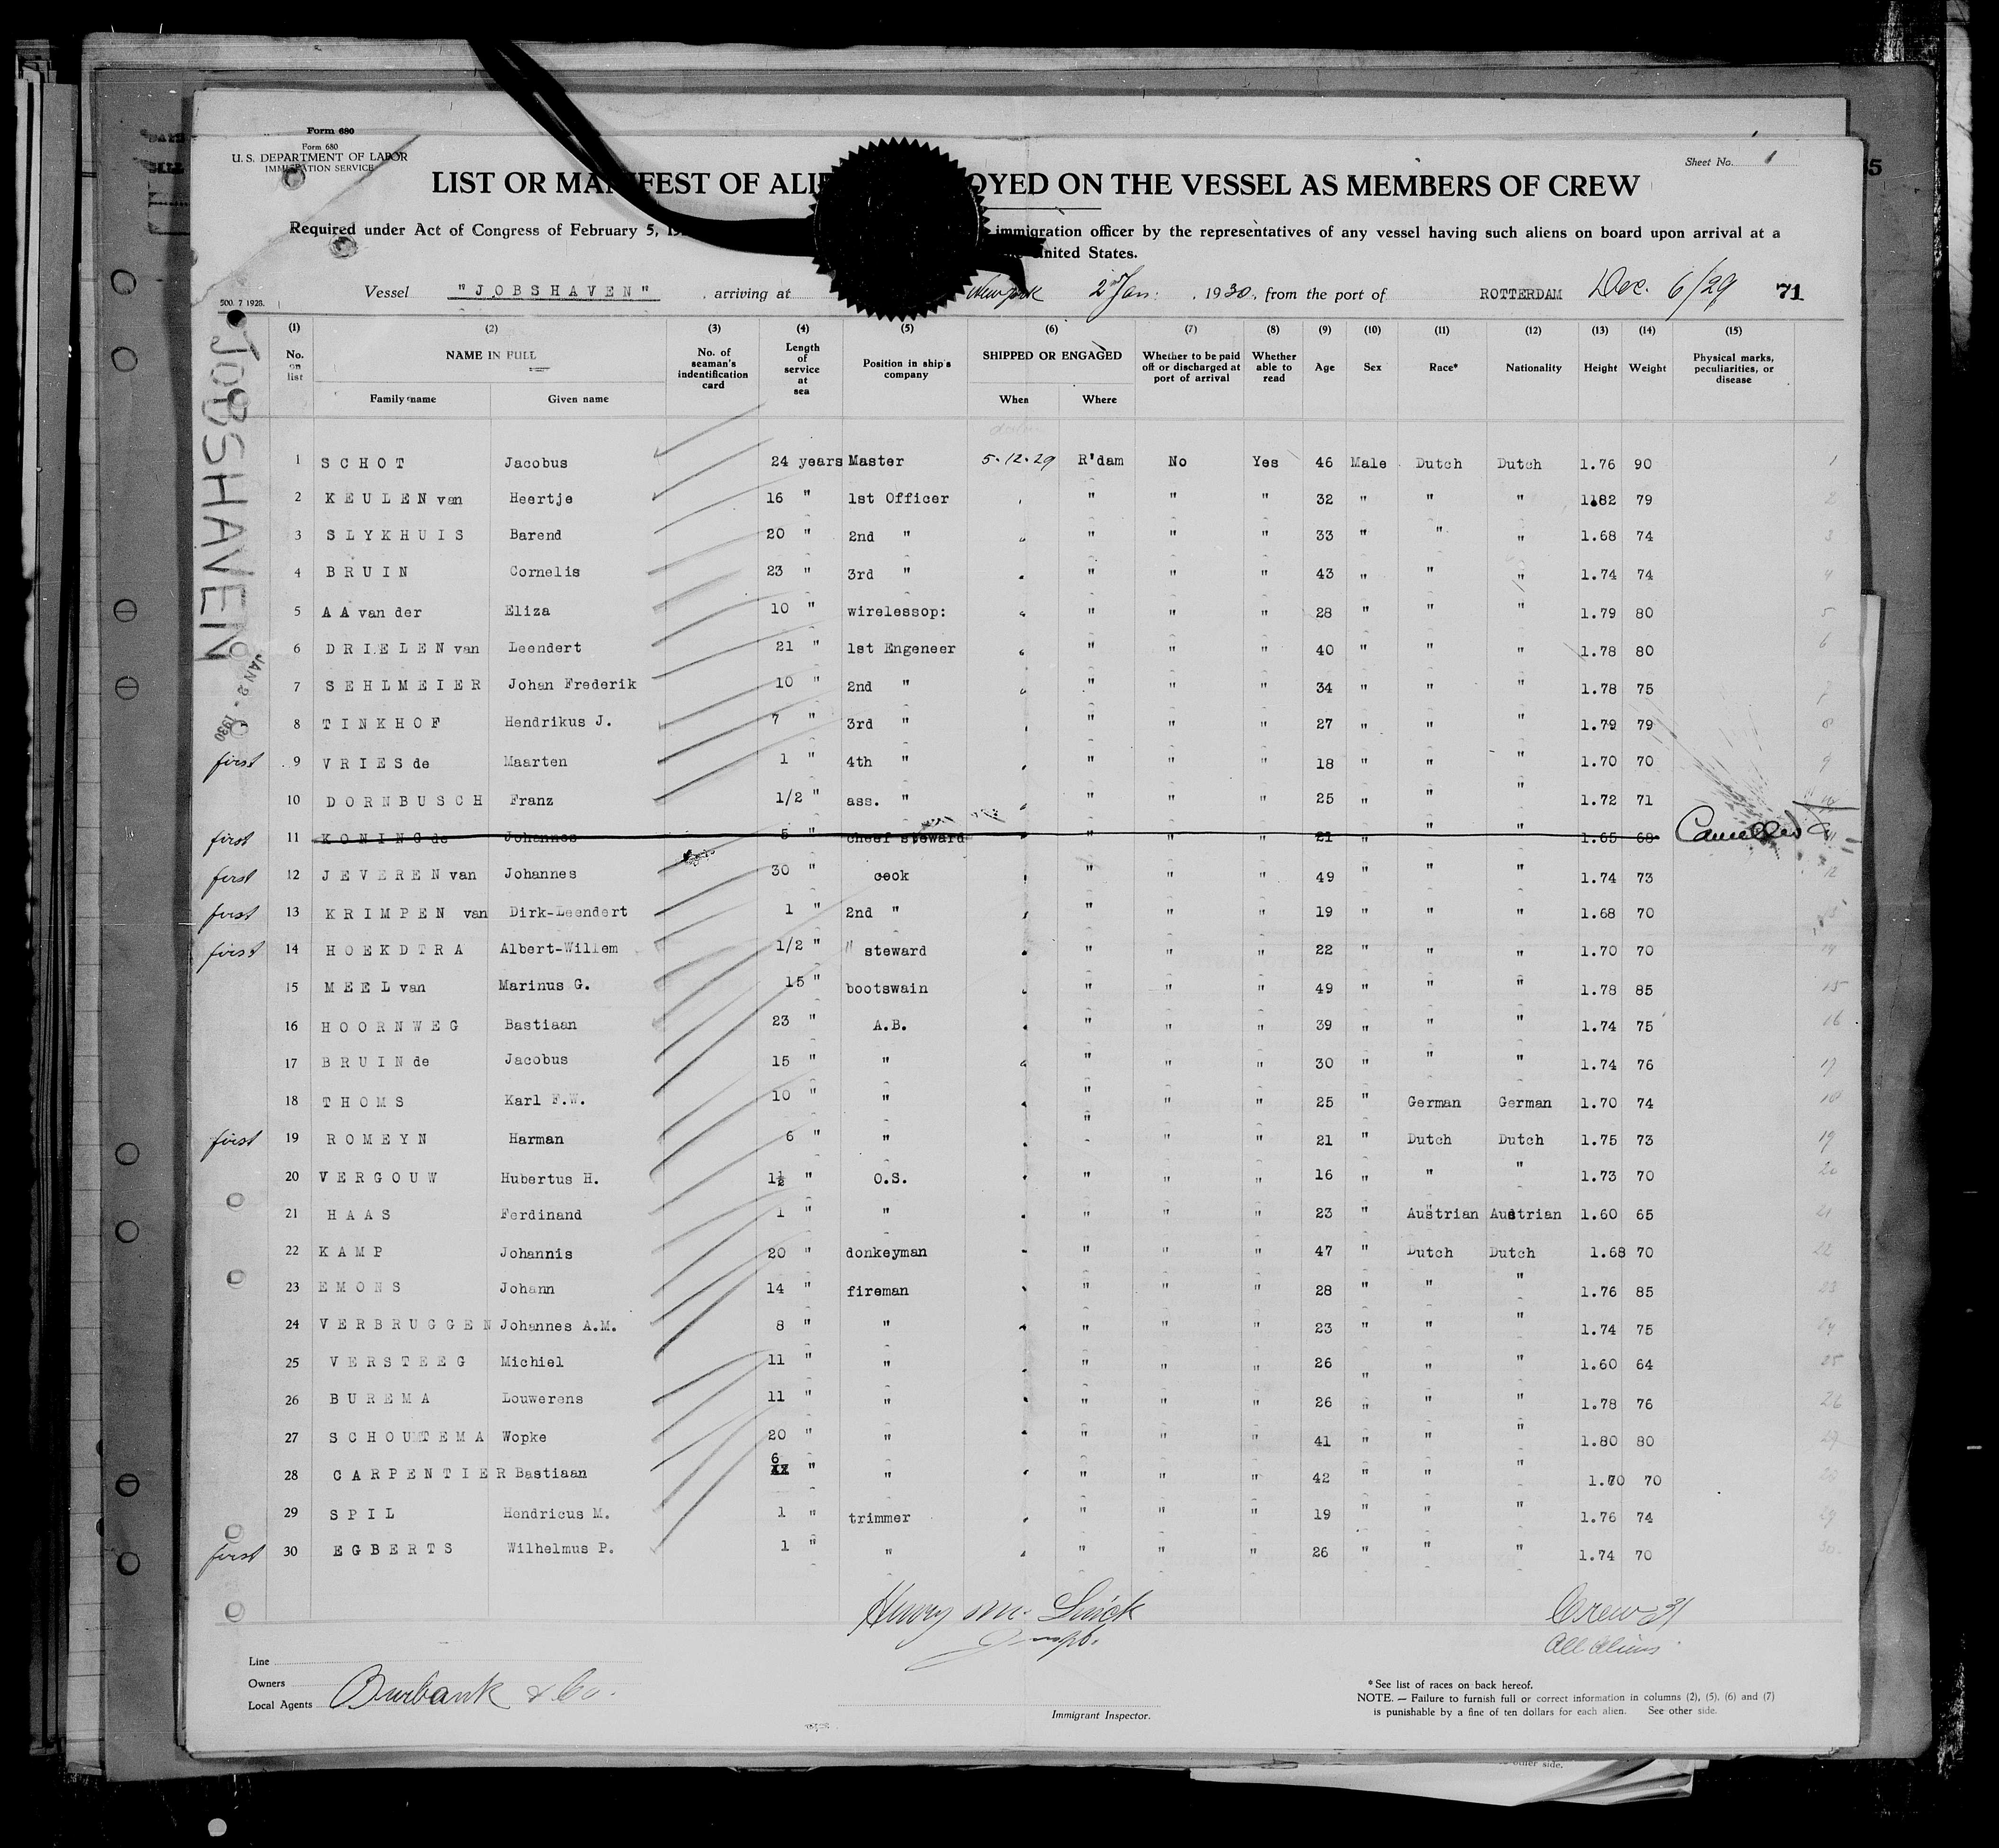 Form 680
Form 680
U. S. DEPARTMENT OF LABOR
IMMIGRATION SERVICE
Sheet No. 1
LIST OR MANIFEST OF ALIE OYED ON THE VESSEL AS MEMBERS OF CREW
Required under Act of Congress of February 5, 19 immigration officer by the representatives of any vessel having such aliens on board upon arrival at a
United States.
500. 7 1928.
Vessel "JOBSHAVEN" , arriving at New York 2 Jan: , 1930, from the port of ROTTERDAM Dec. 6/29 71
JOBSHAVEN
JAN 2 - 1930
(1) (2) (3) (4) (5) (6) (7) (8) (9) (10) (11) (12) (13) (14) (15)
No. on list NAME IN FULL No. of seaman's indentification card Length of service at sea Position in ship's company SHIPPED OR ENGAGED Whether to be paid off or discharged at port of arrival Whether able to read Age Sex Race* Nationality Height Weight Physical marks, peculiarities, or disease
Family name Given name When Where
1 SCHOT Jacobus 24 years Master 5.12.29 R'dam No Yes 46 Male Dutch Dutch 1.76 90 1
2 KEULEN van Heertje 16 " 1st Officer " " " 32 " " " 1.82 79 2
3 SLYKHUIS Barend 20 " 2nd " " " " 33 " " " 1.68 74 3
4 BRUIN Cornelis 23 " 3rd " " " " 43 " " " 1.74 74 4
5 AA van der Eliza 10 " wirelessop: " " " 28 " " " 1.79 80 5
6 DRIELEN van Leendert 21 " 1st Engeneer " " " 40 " " " 1.78 80 6
7 SEHLMEIER Johan Frederik 10 " 2nd " " " " 34 " " " 1.78 75 7
8 TINKHOF Hendrikus J. 7 " 3rd " " " " 27 " " " 1.79 79 8
first 9 VRIES de Maarten 1 " 4th " " " " 18 " " " 1.70 70 9
10 DORNBUSCH Franz 1/2 " ass. " " " " 25 " " " 1.72 71 10
first 11 KONING de Johannes 5 " cheef steward " " " 21 " " " 1.65 68 Cancelled 11
first 12 JEVEREN van Johannes 30 " cook " " " 49 " " " 1.74 73 12
first 13 KRIMPEN van Dirk-Leendert 1 " 2nd " " " " 19 " " " 1.68 70 13
first 14 HOEKDTRA Albert-Willem 1/2 " " steward " " " 22 " " " 1.70 70 14
15 MEEL van Marinus G. 15 " bootswain " " " 49 " " " 1.78 85 15
16 HOORNWEG Bastiaan 23 " A.B. " " " 39 " " " 1.74 75 16
17 BRUIN de Jacobus 15 " " " " " 30 " " " 1.74 76 17
18 THOMS Karl F.W. 10 " " " " " 25 " German German 1.70 74 18
first 19 ROMEYN Harman 6 " " " " " 21 " Dutch Dutch 1.75 73 19
20 VERGOUW Hubertus H. 1½ " O.S. " " " 16 " " " 1.73 70 20
21 HAAS Ferdinand 1 " " " " " 23 " Austrian Austrian 1.60 65 21
22 KAMP Johannis 20 " donkeyman " " " 47 " Dutch Dutch 1.68 70 22
23 EMONS Johann 14 " fireman " " " 28 " " " 1.76 85 23
24 VERBRUGGEN Johannes A.M. 8 " " " " " 23 " " " 1.74 75 24
25 VERSTEEG Michiel 11 " " " " " 26 " " " 1.60 64 25
26 BUREMA Louwerens 11 " " " " " 26 " " " 1.78 76 26
27 SCHOUTEMA Wopke 20 " " " " " 41 " " " 1.80 80 27
28 CARPENTIER Bastiaan 6 " " " " " 42 " " " 1.70 70 28
29 SPIL Hendricus M. 1 " trimmer " " " 19 " " " 1.76 74 29
first 30 EGBERTS Wilhelmus P. 1 " " " " " 26 " " " 1.74 70 30
Crew 31
All Aliens
Line
Owners
Local Agents Burbank & Co.
Immigrant Inspector.
* See list of races on back hereof.
NOTE. — Failure to furnish full or correct information in columns (2), (5), (6) and (7)
is punishable by a fine of ten dollars for each alien. See other side.
other side.